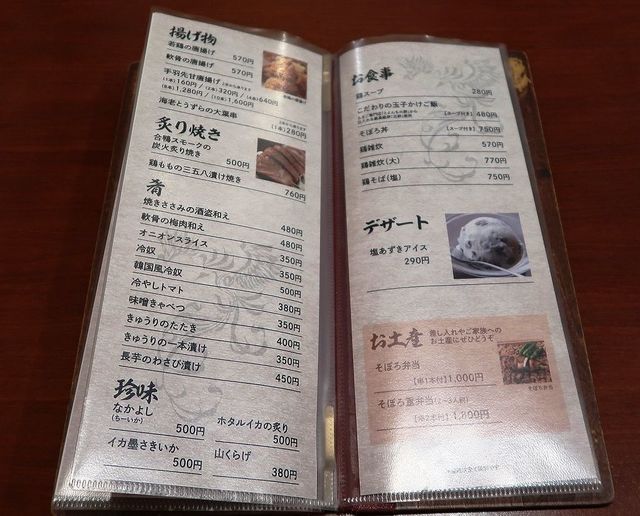 揚げ物
若鶏の唐揚げ 570円
軟骨の唐揚げ 570円
手羽先甘唐揚げ
(1本)160円/(2本)320円/(4本)640円
(8本)1,280円/(10本)1,600円
海老とうずらの大葉串 (1本)280円
炙り焼き
合鴨スモークの
炭火炙り焼き 500円
鶏ももの三五八漬け焼き 760円
肴
焼きささみの酒盗和え 480円
軟骨の梅肉和え 480円
オニオンスライス 350円
冷奴 350円
韓国風冷奴 500円
冷やしトマト 380円
味噌きゃべつ 350円
きゅうりのたたき 400円
きゅうりの一本漬け 350円
長芋のわさび漬け 450円
珍味
なかよし
(ちーいか) 500円
イカ墨さきいか 500円
ホタルイカの炙り 500円
山くらげ 380円
お食事
鶏スープ 280円
こだわりの玉子かけご飯 【スープ付き】 480円
そぼろ丼 【スープ付き】 750円
鶏雑炊 570円
鶏雑炊(大) 770円
鶏そば(塩) 750円
デザート
塩あずきアイス
290円
お土産 差し入れやご家族への
お土産にぜひどうぞ
そぼろ弁当
【串1本付】1,000円
そぼろ重弁当(2~3人前)
【串2本付】1,800円
そぼろ弁当